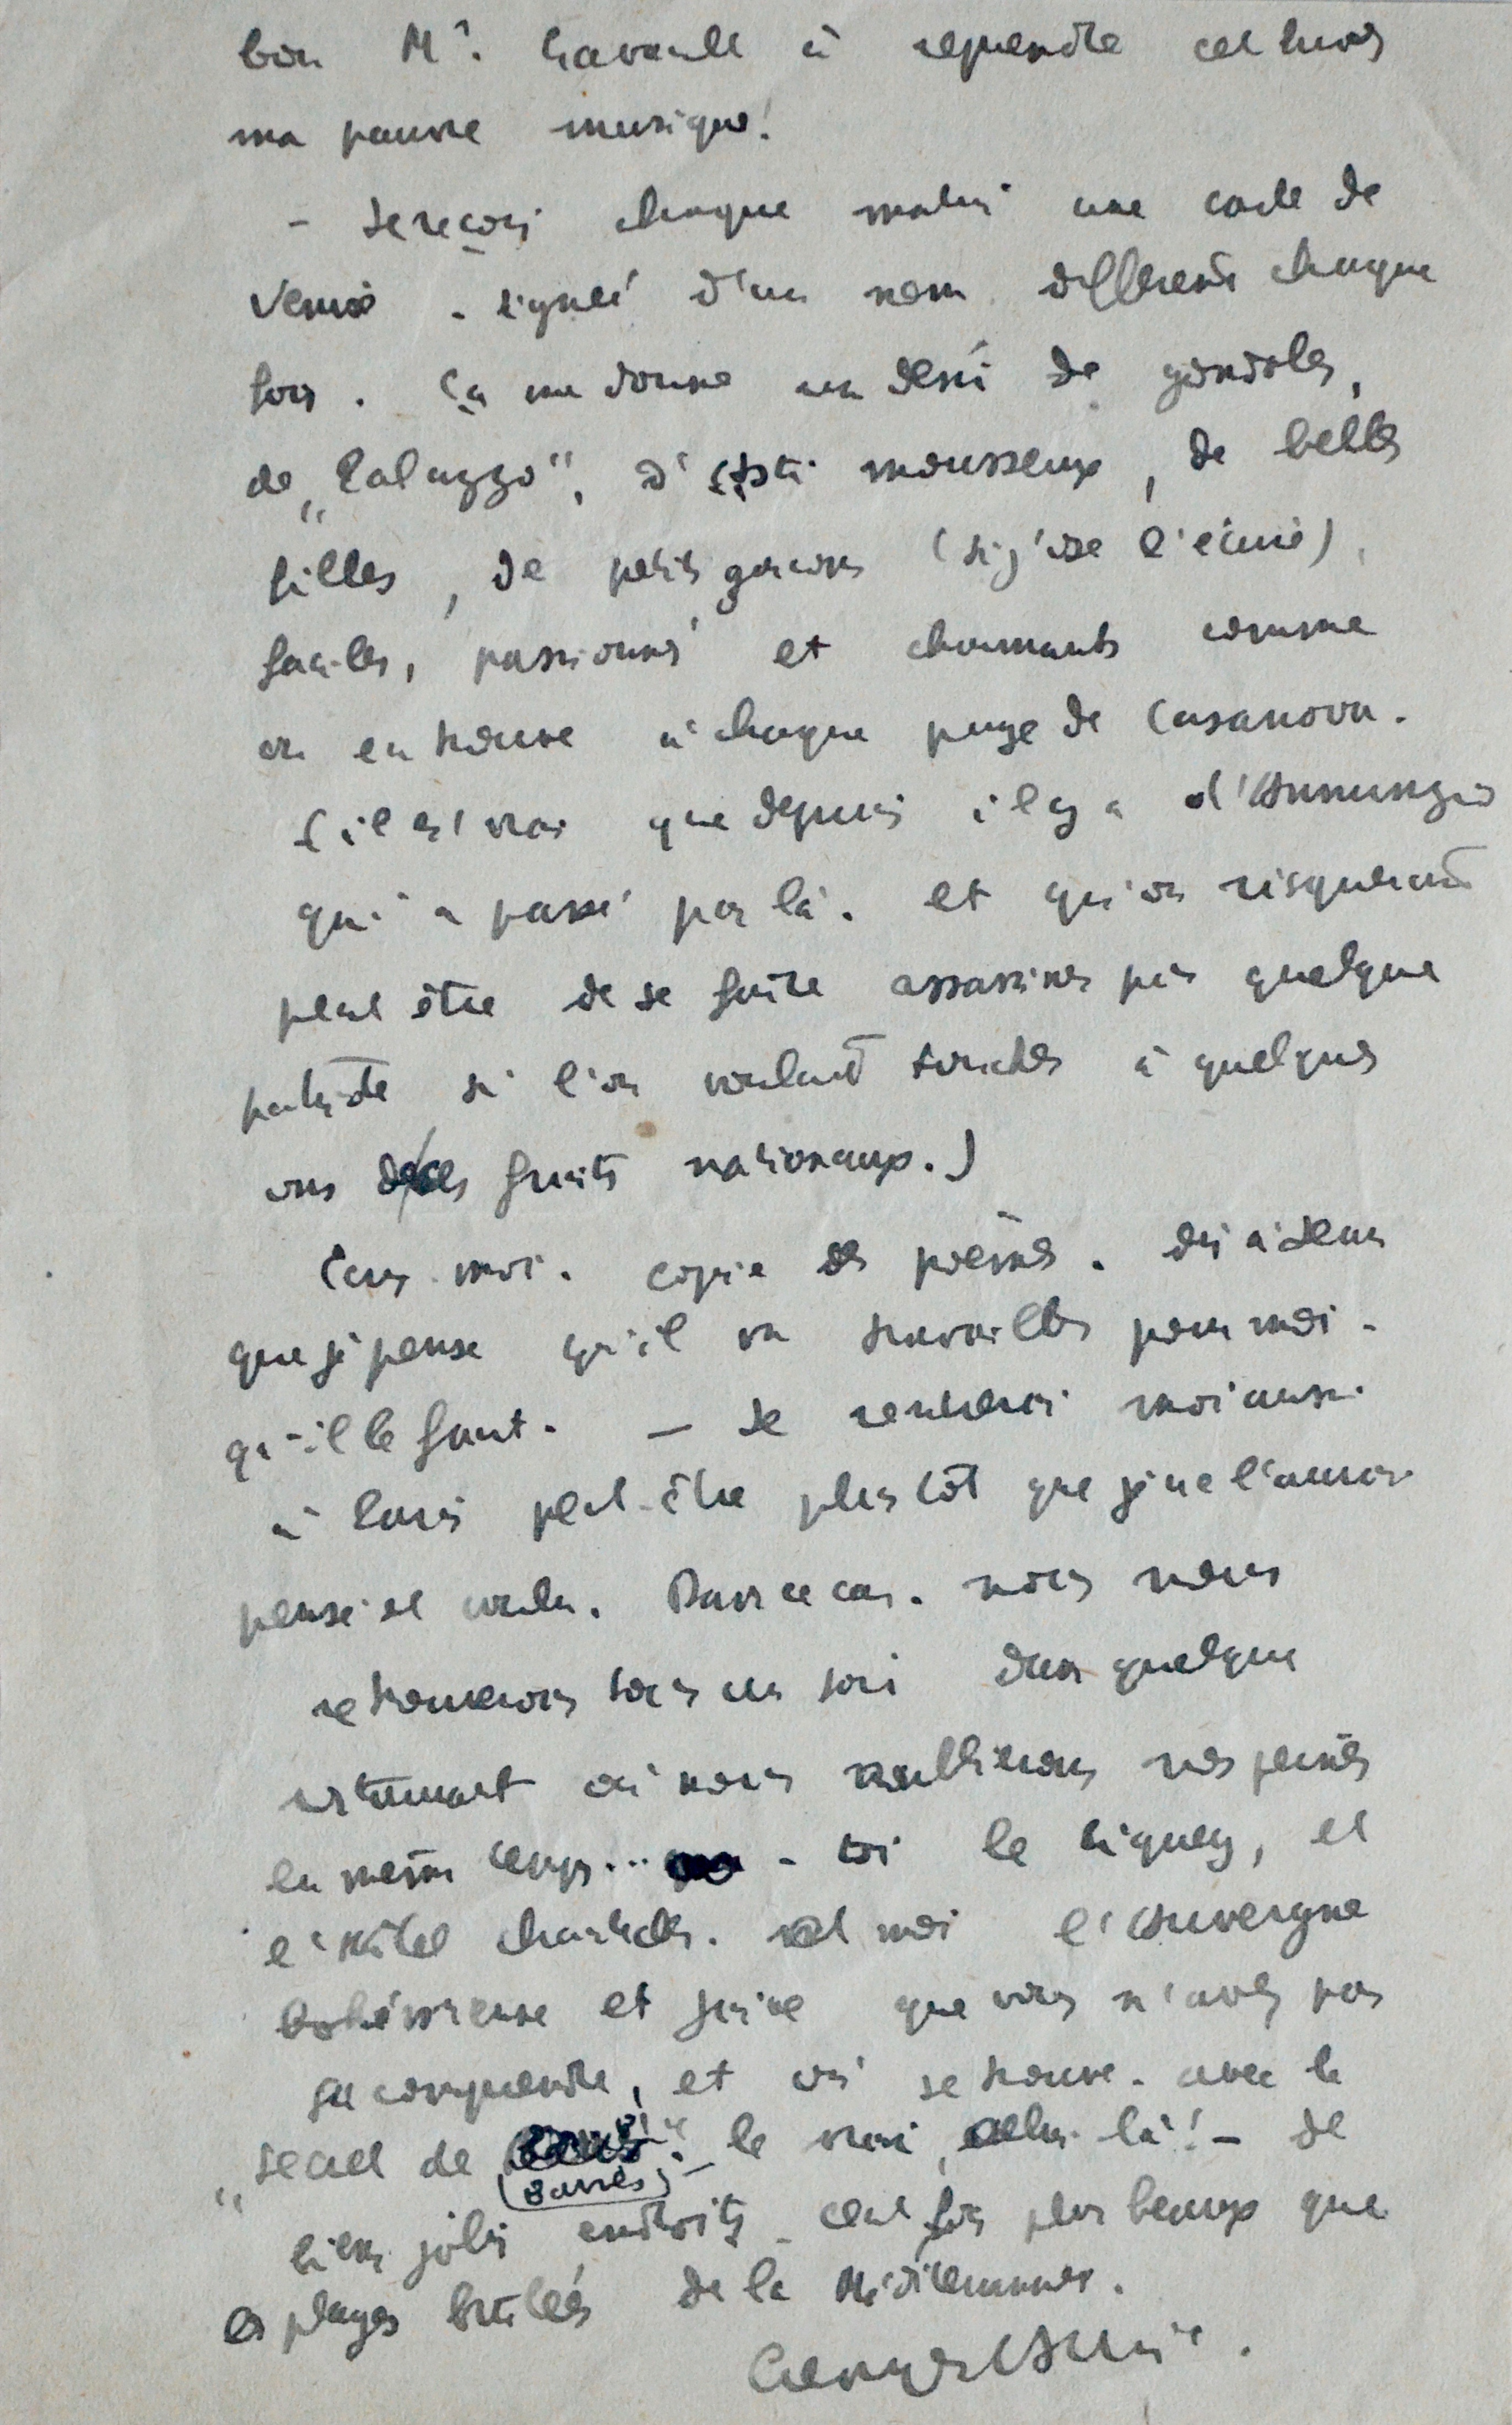 bon Mr. Gavault à reprendre cet hiver
ma pauvre musique!
- Je reçois chaque matin une carte de
Venise - signée d'un nom différent chaque
fois. Ça me donne un désir de gondoles,
de „Palazzo“, d'Asti mousseux, de belles
filles, de petits garçons (si j'ose l'écrire),
faciles, passionnés et charmants comme
on en trouve à chaque page de Casanova.
(il est vrai que depuis il y a d'Annunzio
qui a passé par là. et qu'on risquerait
peut être de se faire assassiner par quelque
patriote si l'on voulait toucher à quelques
uns de ces fruits nationaux.)
Ecris-moi. copie des poèmes. dis à Jean
que je pense qu'il va travailler pour moi -
qu'il le faut. — Je rentrerai moi aussi
à Paris peut-être plus tôt que je ne l'aurais
pensé et voulu. Dans ce cas. nous nous
retrouverons tous un soir dans quelque
restaurant où nous oublierons nos peines
en même temps... - toi le Piquey, et
l'hôtel Chantecler. et moi l'Auvergne
bohémienne et grise que vous n'avez pas
su comprendre, et où se trouve - avec le
„secret de Barrès“ - le vrai, celui là! - de
bien jolis endroits - cent fois plus beaux que
les plages brûlées de la Méditerranée.
Georges Auric.